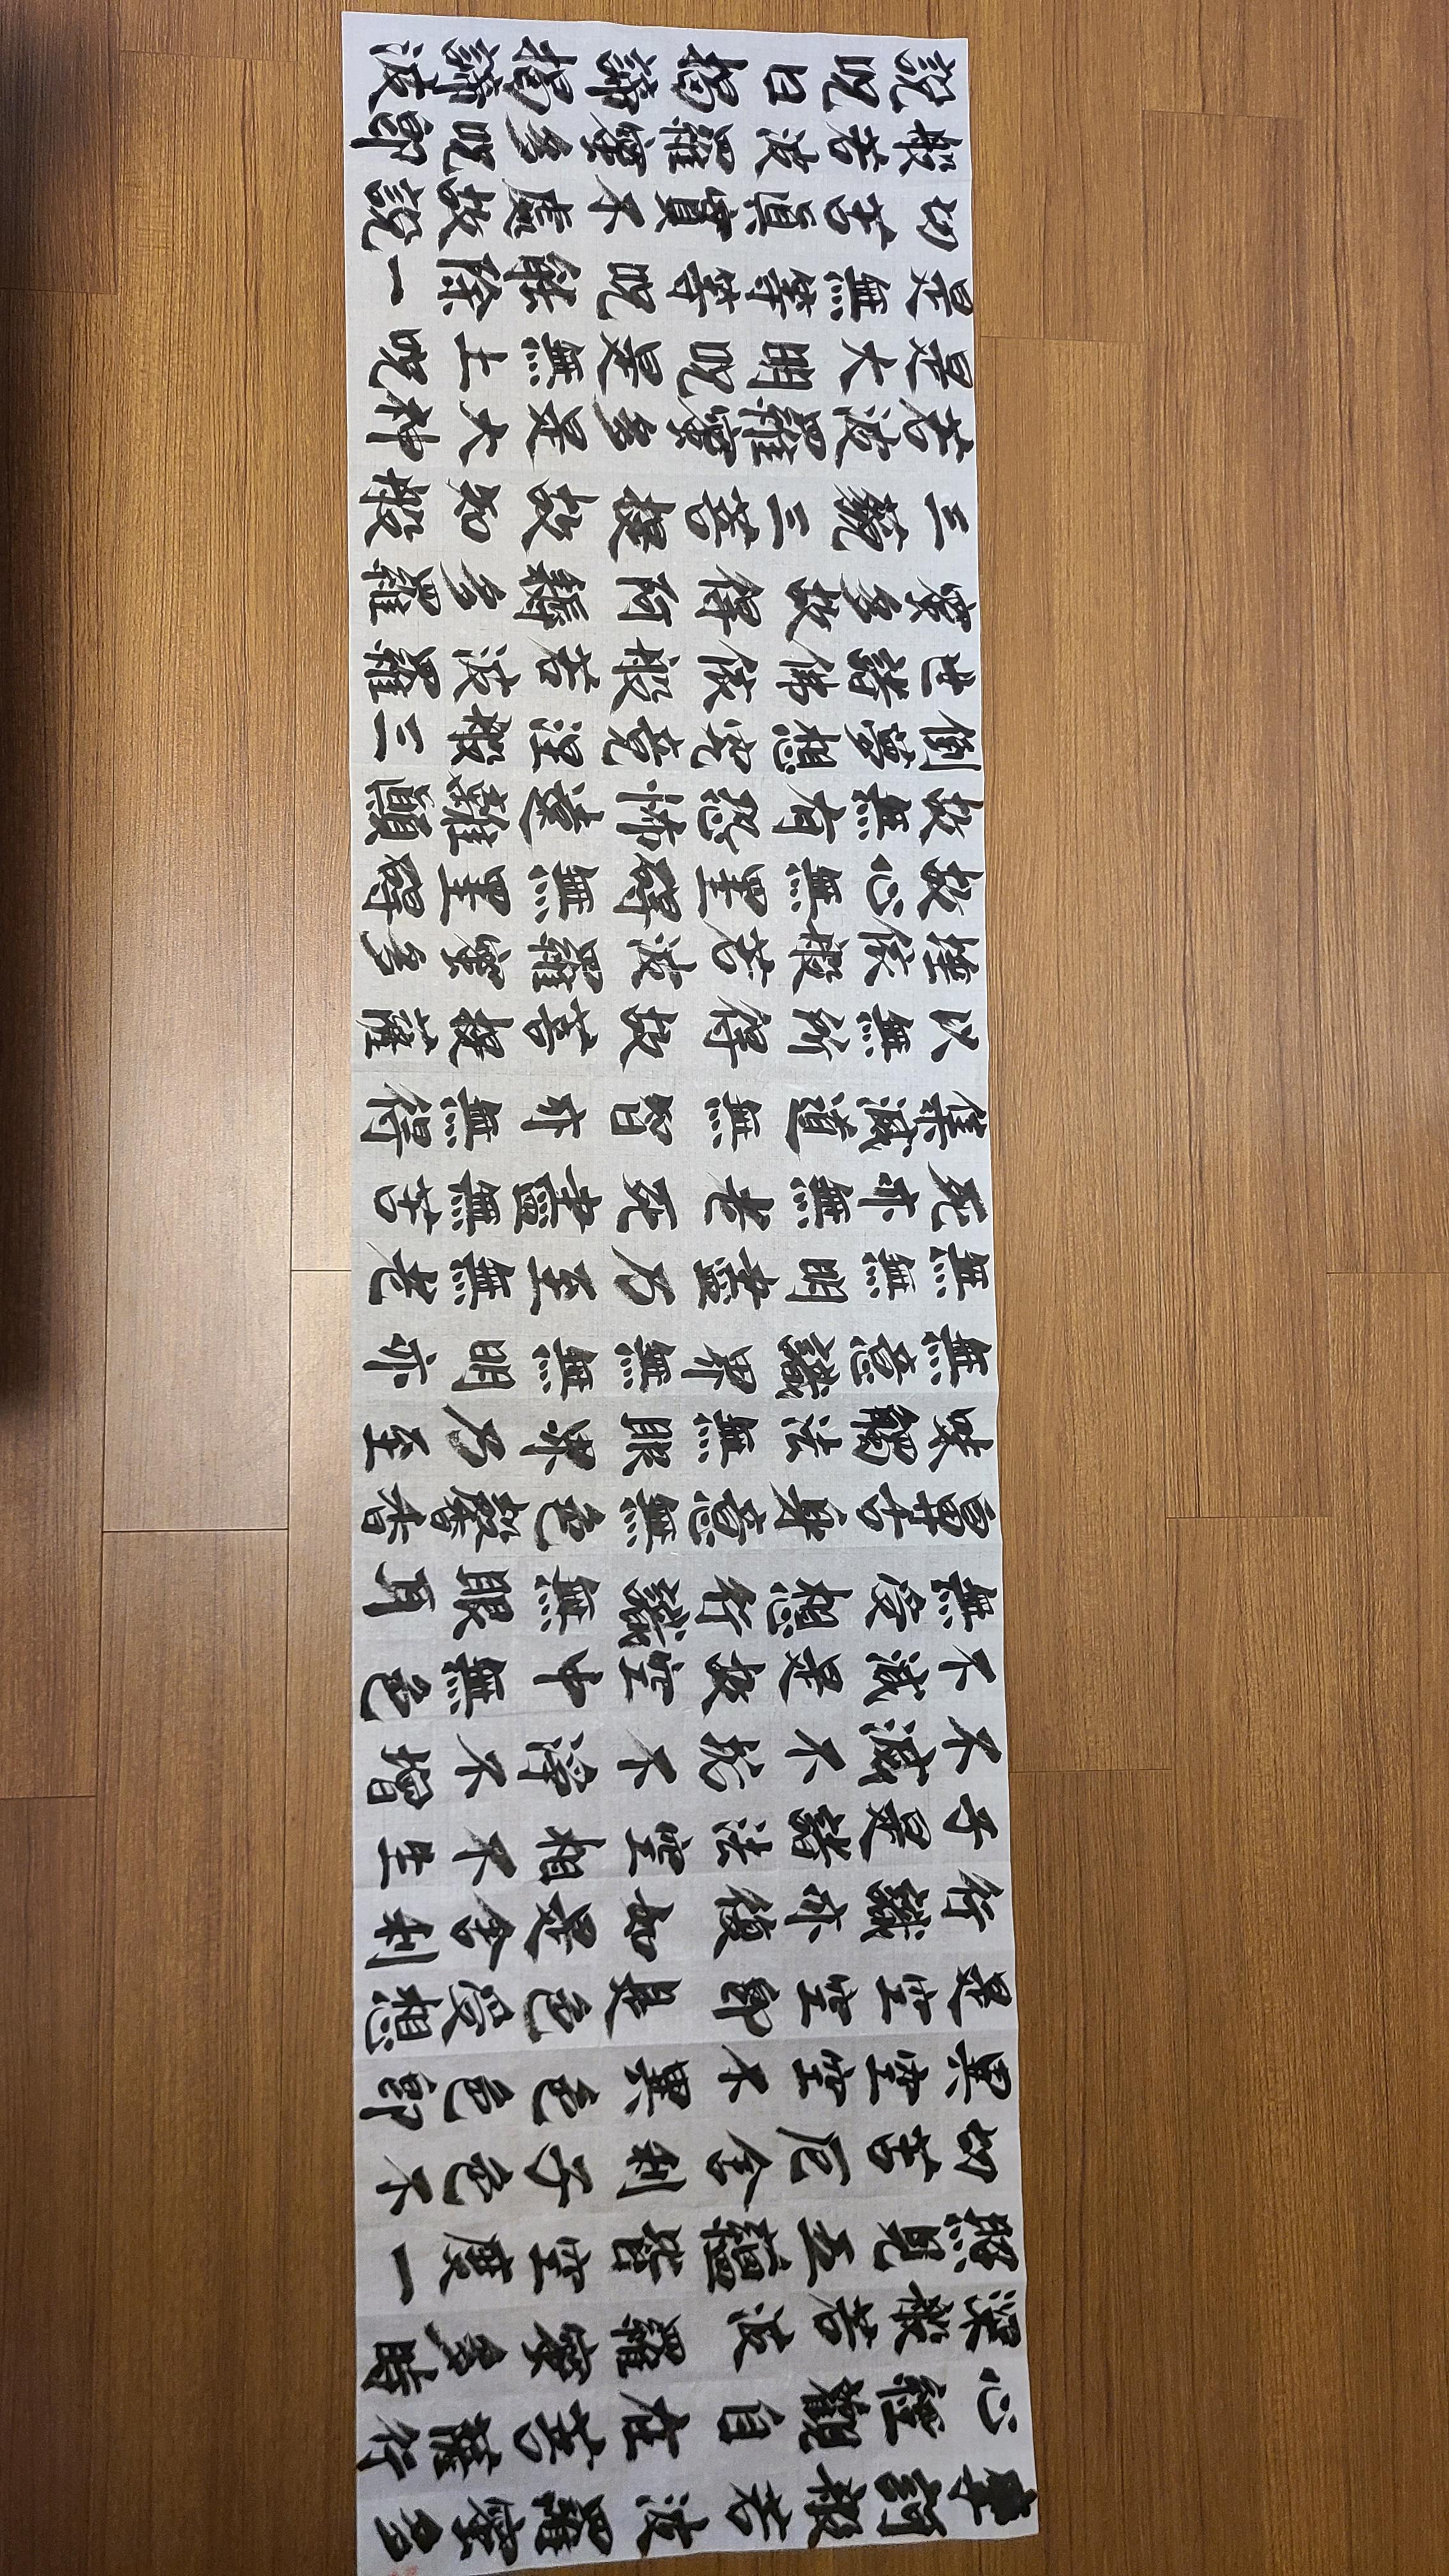 摩訶般若波羅蜜多
心經觀自在菩薩行
深般若波羅蜜多時
照見五蘊皆空度一
切苦厄舍利子色不
異空空不異色色即
是空空即是色受想
行識亦復如是舍利
子是諸法空相不生
不滅不垢不淨不增
不減是故空中無色
無受想行識無眼耳
鼻舌身意無色聲香
味觸法無眼界乃至
無意識界無無明亦
無無明盡乃至無老
死亦無老死盡無苦
集滅道無智亦無得
以無所得故菩提薩
埵依般若波羅蜜多
故心無罣礙無罣礙
故無有恐怖遠離顚
倒夢想究竟涅般三
世諸佛依般若波羅
蜜多故得阿耨多羅
三藐三菩提故知般
若波羅蜜多是大神
是大明呪是無上呪
是無等等呪能除一
切苦眞實不虛故說
般若波羅蜜多呪即
說呪曰揭諦揭諦波